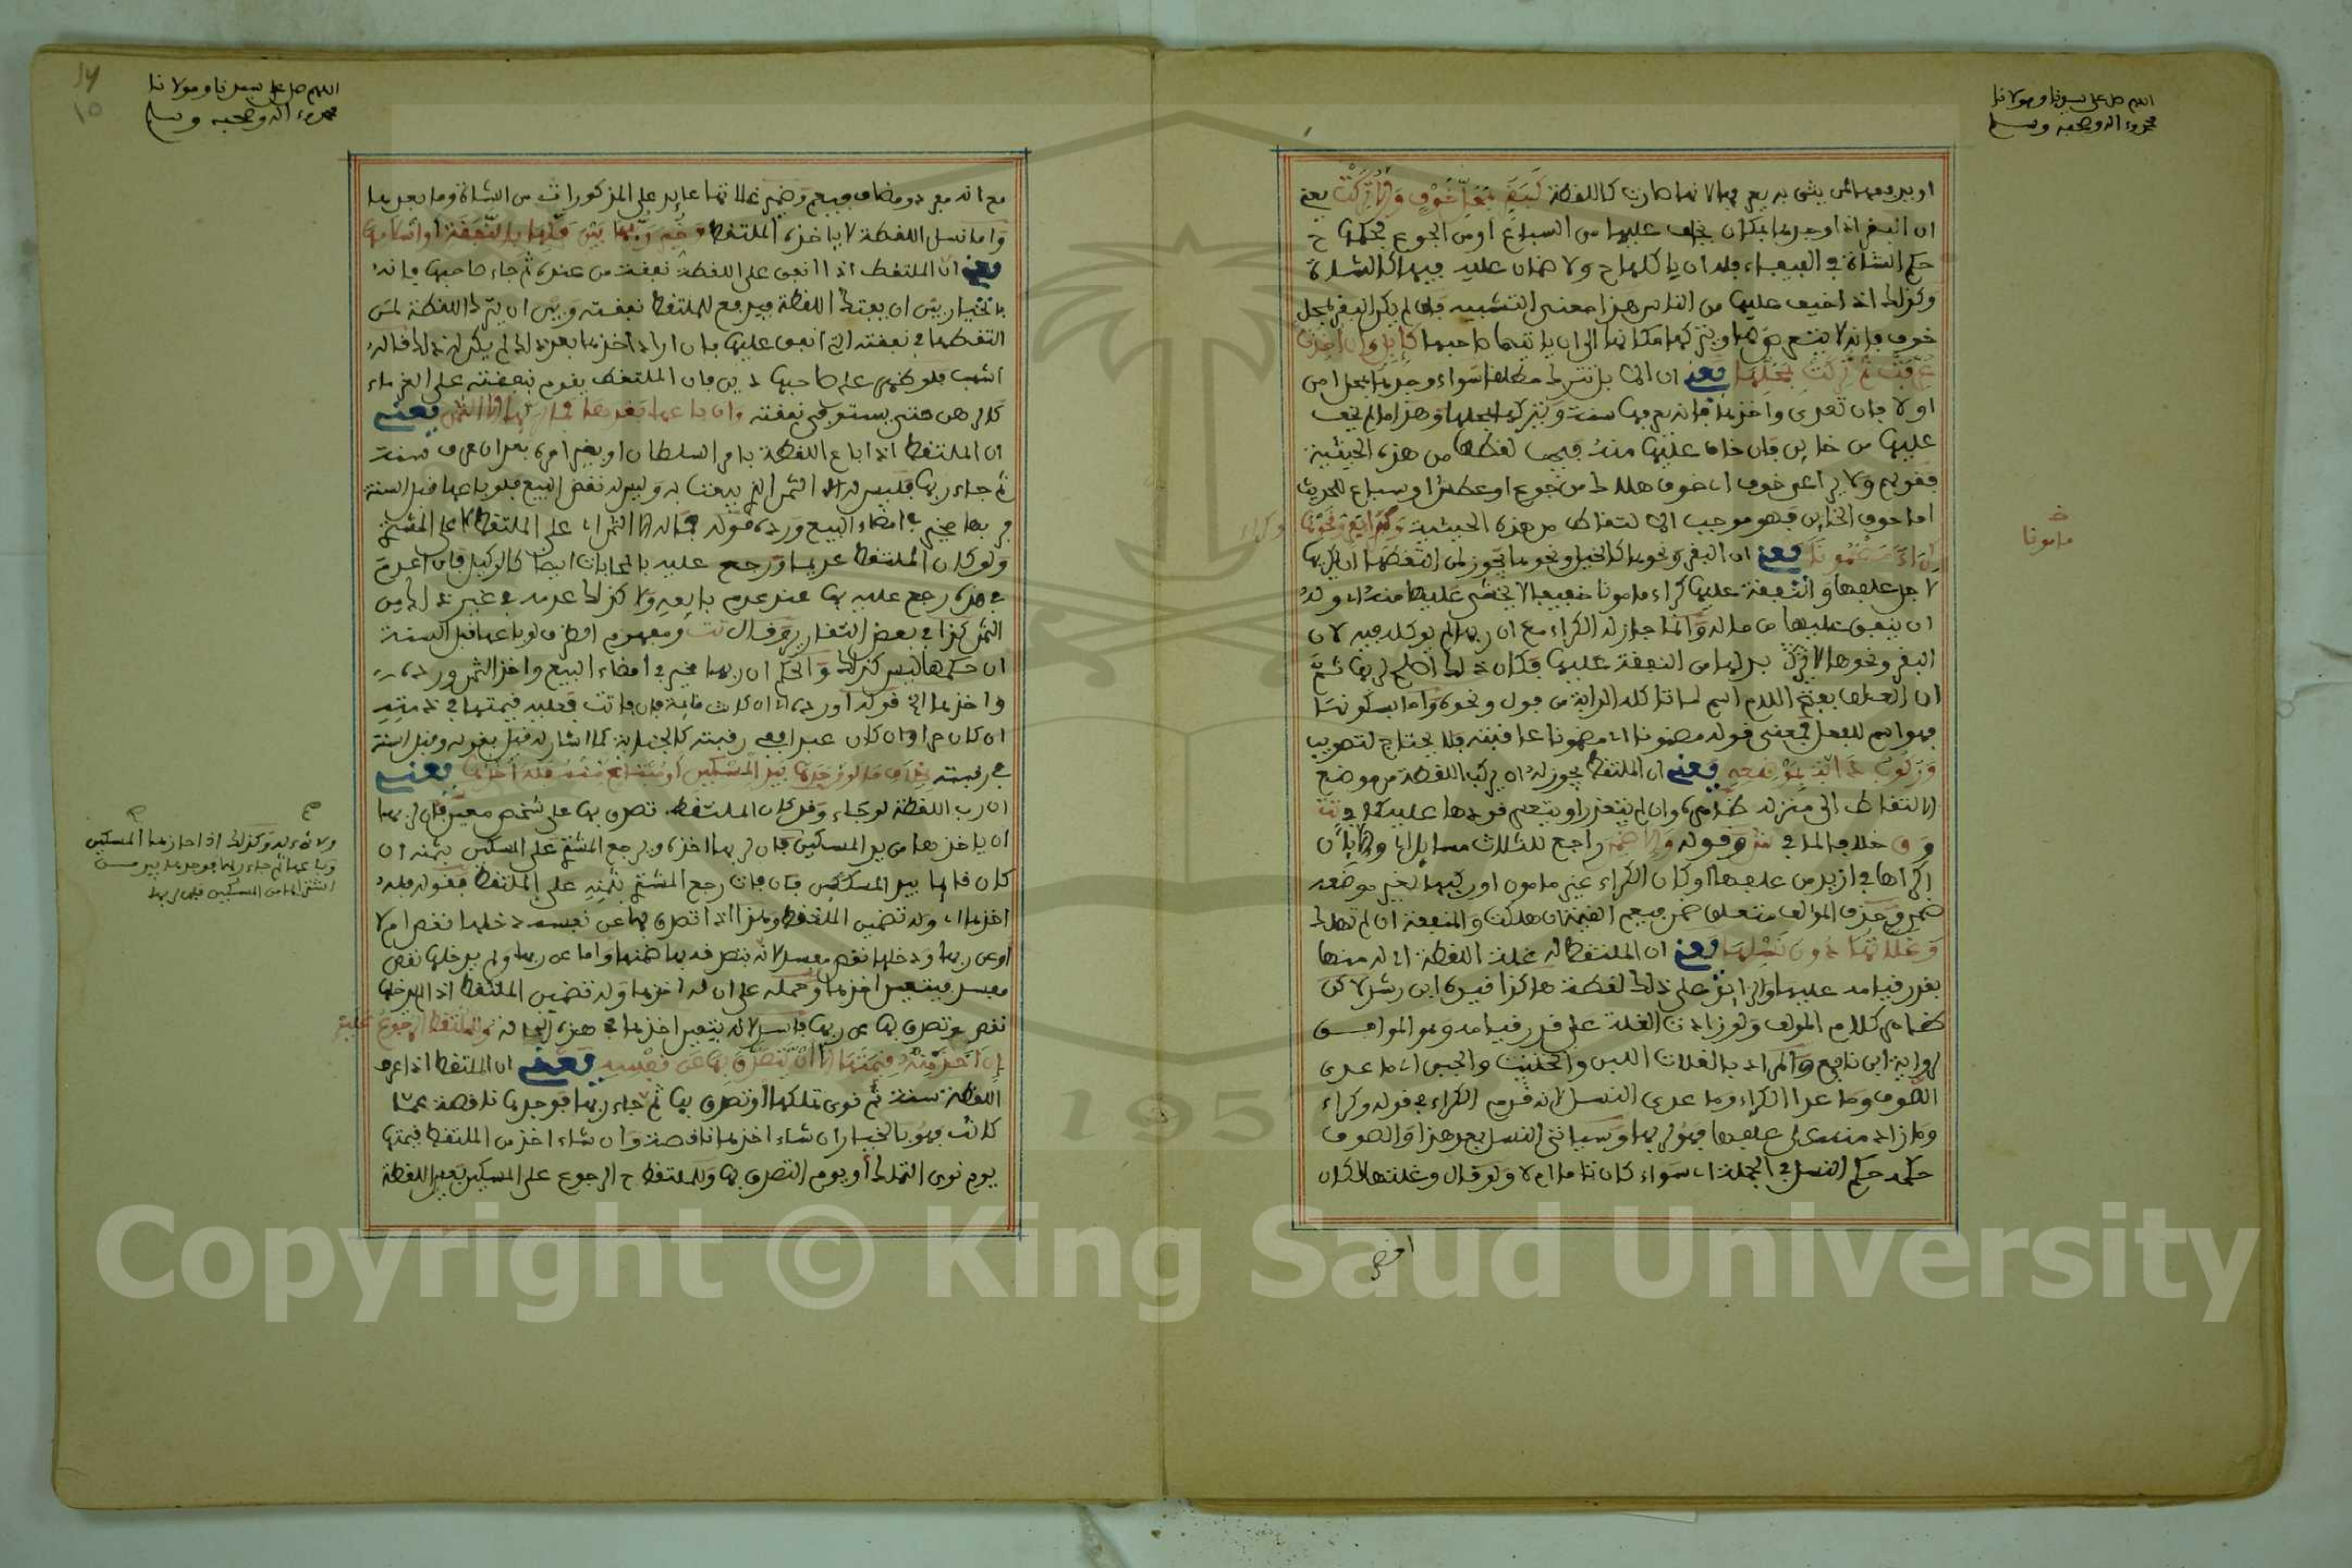 اللهم صل على سيدنا ومولانا
محمد وءاله وصحبه وسلم
او يريد فيمن يثق به يعرفها لانها صارت كاللقطة كَبَقَرٍ بِمَحَلِّ خَوْفٍ وَإِلَّا تُرِكَتْ يعني
ان البقر اذا وجدها بمكان يخاف عليها من السباع او من الجوع فحكمها ح
حكم الشاة في الفيفاء فله ان ياكلها ح ولا ضمان عليه فيها كالشاة
وكذلك اذا خيف عليها من الناس هذا معنى التشبيه فان لم يكن البقر بمحل
خوف فانه لا يتعرض لها ويتركها مكانها الى ان ياتيها صاحبها كَإِبِلٍ وَإِنْ أُخِذَتْ
عُرِّفَتْ ثُمَّ تُرِكَتْ بِمَحَلِّهَا يعني ان الابل تترك مطلقا سواء وجدها بمحل امن
او لا فان تعدى واخذها فانه يعرفها سنة ويتركها بمحلها وهذا ما لم يخف
عليها من خاين فان خاف عليها منه فيجب لقطها من هذه الحيثية
فقولهم ولا يراعى خوف اي خوف هلاك من جوع او عطش او سباع للحديث
اما خوف الخاين فهو موجب الالتقاط من هذه الحيثية وَكِرَاءُ بَقَرٍ وَنَحْوِهَا
وكراء
مامونا
يعني ان البقر ونحوها كالخيل ونحوها يجوز لمن التقطها ان يكريها
لاجل علفها والنفقة عليها كراء مامونا خفيفا لا يخشى عليها منه اي وله
ان ينفق عليها من ماله وانما جاز له الكراء مع ان ربها لم يوكله فيه لان
البقر ونحوها لابد لها من النفقة عليها فكان ذلك اصلح لربها ثم
ان العلف بفتح اللام اسم لما تاكله الدابة من فول ونحوه واما بسكونها
فهو اسم للفعل فمعنى قوله مضمونا اي مضمونا عاقبته فلا يحتاج لتصويب
وَرُكُوبُ دَابَّةٍ لِمَوْضِعِهِ يعني ان الملتقط يجوز له ان يركب اللقطة من موضع
الالتقاط الى منزله ظاهره وان لم يتعذر او يتعسر قودها عليه كما في تت
و ق خلافا لما في وقوله وَإِلَّا ضَمِنَ راجع للثلاث مسايل اي وإلا بان
اكراها في ازيد من علفها او كان الكراء غير مامون او ركبها لغير موضعه
ضمن وحذف المؤلف متعلق ضمن فيعم القيمة ان هلكت والمنفعة ان لم تهلك
وَغَلَّاتُهَا دُونَ نَسْلِهَا يعني ان الملتقط له غلة اللقطة اي له منها
بقدر قيامه عليها والزائد على ذلك لقطة هكذا قيده ابن رشد لاكن
ظاهر كلام المؤلف ولو زادت الغلة على قدر قيامه وهو الموافق
لرواية ابن نافع والمراد بالغلات اللبن والجبن اي ما عدى
الصوف وما عدا الكراء وما عدى النسل لانه قدم الكراء في قوله وكراء
وما زاد منه على علفها فهو لربها وسياتي النسل بعد هذا والصوف
حكمه حكم النسل في الجملة اي سواء كان تاما ام لا ولو قال وغلتها لكان
اللهم صل على سيدنا ومولانا
محمد وءاله وصحبه وسلم
١٥
مع انه مفرد ومضاف فيعم وضمير غلاتها عايد على المذكورات من الشاة وما بعدها
واما نسل اللقطة لا ياخذه الملتقط وَخُيِّرَ رَبُّهَا بَيْنَ فَكِّهَا بِالنَّفَقَةِ أَوْ إِسْلَامِهَا
يعني ان الملتقط اذا انفق على اللقطة نفقة من عنده ثم جاء صاحبها فانه
بالخيار بين ان يفتك اللقطة فيدفع للملتقط نفقته وبين ان يترك اللقطة لمن
التقطها في نفقته التي انفق عليها فان اراد اخذها بعد ذلك لم يكن له ذلك قاله
اشهب فلو ظهر على صاحبها دين فان الملتقط يقدم بنفقته على الغرماء
كالرهن حتى يستوفي نفقته وان باعها بعدها فما لربها إلا الثمن يعني
ان الملتقط اذا باع اللقطة بامر السلطان او بغير امره بعد ان عرف سنة
ثم جاء ربها فليس له الا الثمن الذي بيعت به وليس له نقض البيع فلو باعها قبل السنة
فربها مخير في امضاء البيع ورده فقوله فما له الا الثمن اي على الملتقط لا على المشتري
ولو كان الملتقط عديما ورجع عليه بالمحابات ايضا كالوكيل فان اعدم
في هذه رجع عليه بها عند عدم بايعه ولا كذلك عدمه في غير ذلك من
الثمن كذا في بعض التقارير وقال تت ومفهوم الظرف لو باعها قبل السنة
ان حكمها ليس كذلك والحكم ان ربها مخير في امضاء البيع واخذ الثمن ورده
واخذها الخ قوله او رده اي ان كانت قائمة فان فاتت فعليه قيمتها في ذمته
ان كان حرا وان كان عبدا ففي رقبته كالجناية كما اشار له قبل بقوله وقبل السنة
في رقبته بخلاف ما لو وجدها بيد المسكين أو مبتاع منه فله أخذها يعني
ان رب اللقطة لو جاء وقد كان الملتقط تصدق بها على شخص معين فان لربها
ان ياخذها من يد المسكين فان لربها اخذه ويرجع المشتري على المسكين بثمنه ان
كان قائما بيد المسكين فان فات رجع المشتري بثمنه على الملتقط فقوله فله
اخذها اي وله تضمين الملتقط وهذا اذا تصدق بها عن نفسه دخلها نقص ام لا
او عن ربها ودخلها نقص مفسد لانه بتصرفه بها ضمنها واما عن ربها ولم يدخلها نقص
مفسد فيتعين اخذها وحمله على ان له اخذها وله تضمين الملتقط اذا دخلها
نقص وتصدق بها عن ربها لانه يتعين اخذها في هذه الحالة وللملتقط الرجوع عليه
إن أخذ منه قيمتها إلا أن يتصدق بها عن نفسه يعني ان الملتقط اذا عرف
اللقطة سنة ثم نوى تملكها او تصدق بها ثم جاء ربها فوجدها ناقصة عما
كانت فهو بالخيار ان شاء اخذها ناقصة وان شاء اخذ من الملتقط قيمتها
يوم نوى التملك او يوم التصدق بها وللملتقط ح الرجوع على المسكين بعين اللقطة
وكذلك اذا
وباعها ثم جاء ربها فوجدها بيد من
اشتراها من المسكين فان لربها